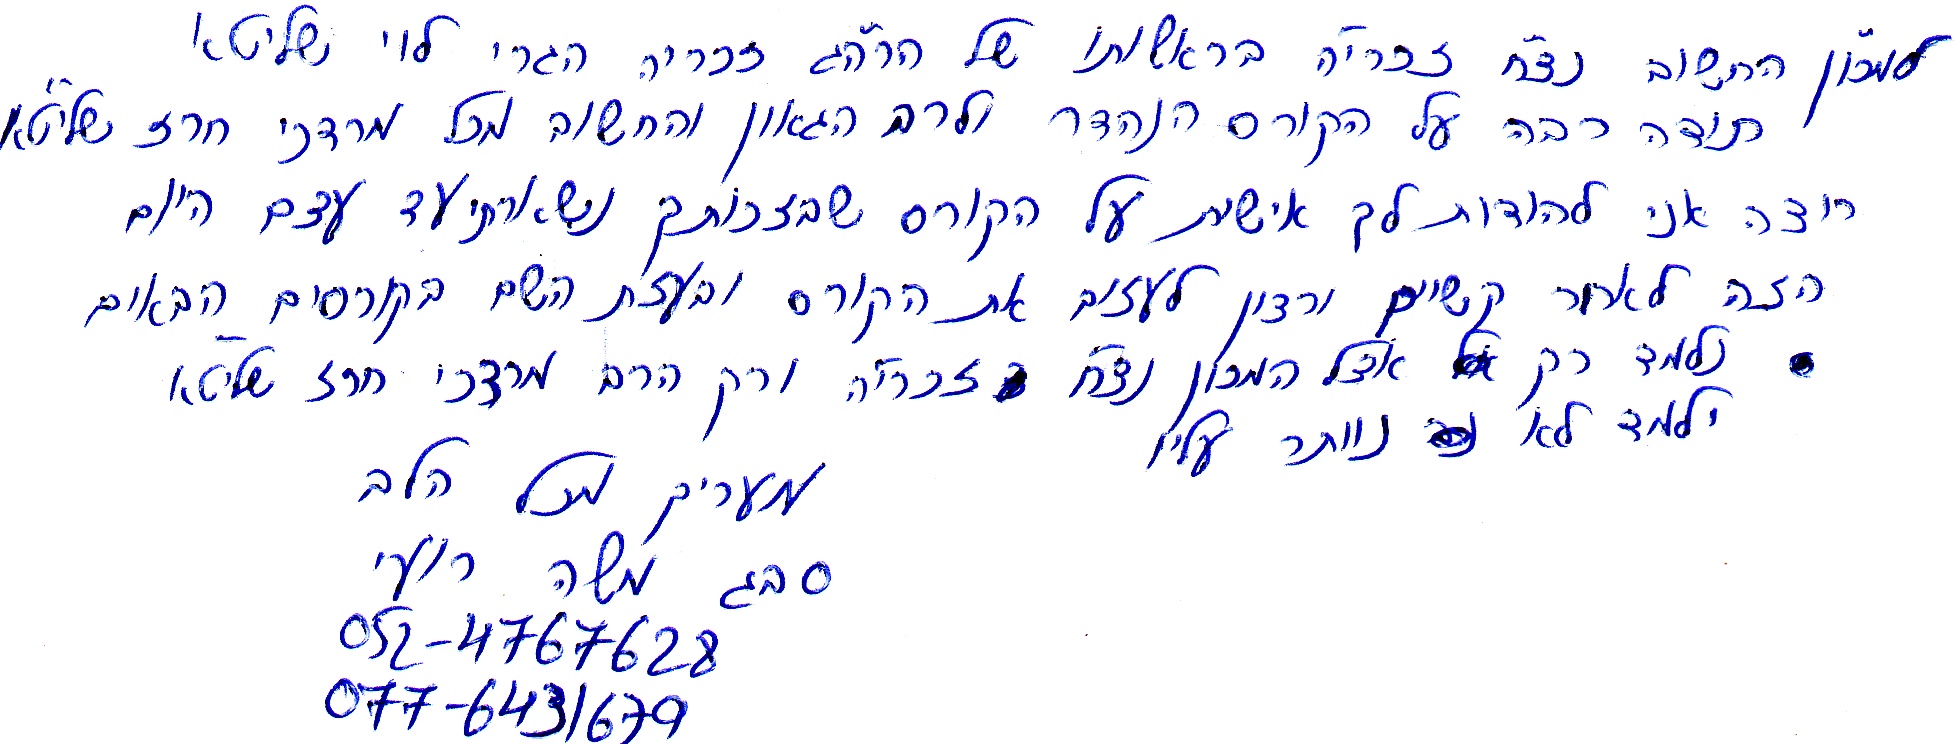 למכון החשוב נצח זכריה בראשותו של הרה"ג זכריה הגרי לוי שליטא
תודה רבה על הקורס הנהדר ולרב הגאון והחשוב מכל מרדכי חרז שליטא
רוצה אני להודות לך אישית על הקורס שבזכותך נישארתי עד עצם היום
הזה לאחר קשיים ורצון לעזוב את הקורס ובעזת השם בקורסים הבאים
נלמד רק אצל המכון נצח זכריה ורק הרב מרדכי חרז שליטא
ילמד לא נוותר עליו
מעריך מכל הלב
סבג משה רועי
052-4767628
077-6431679